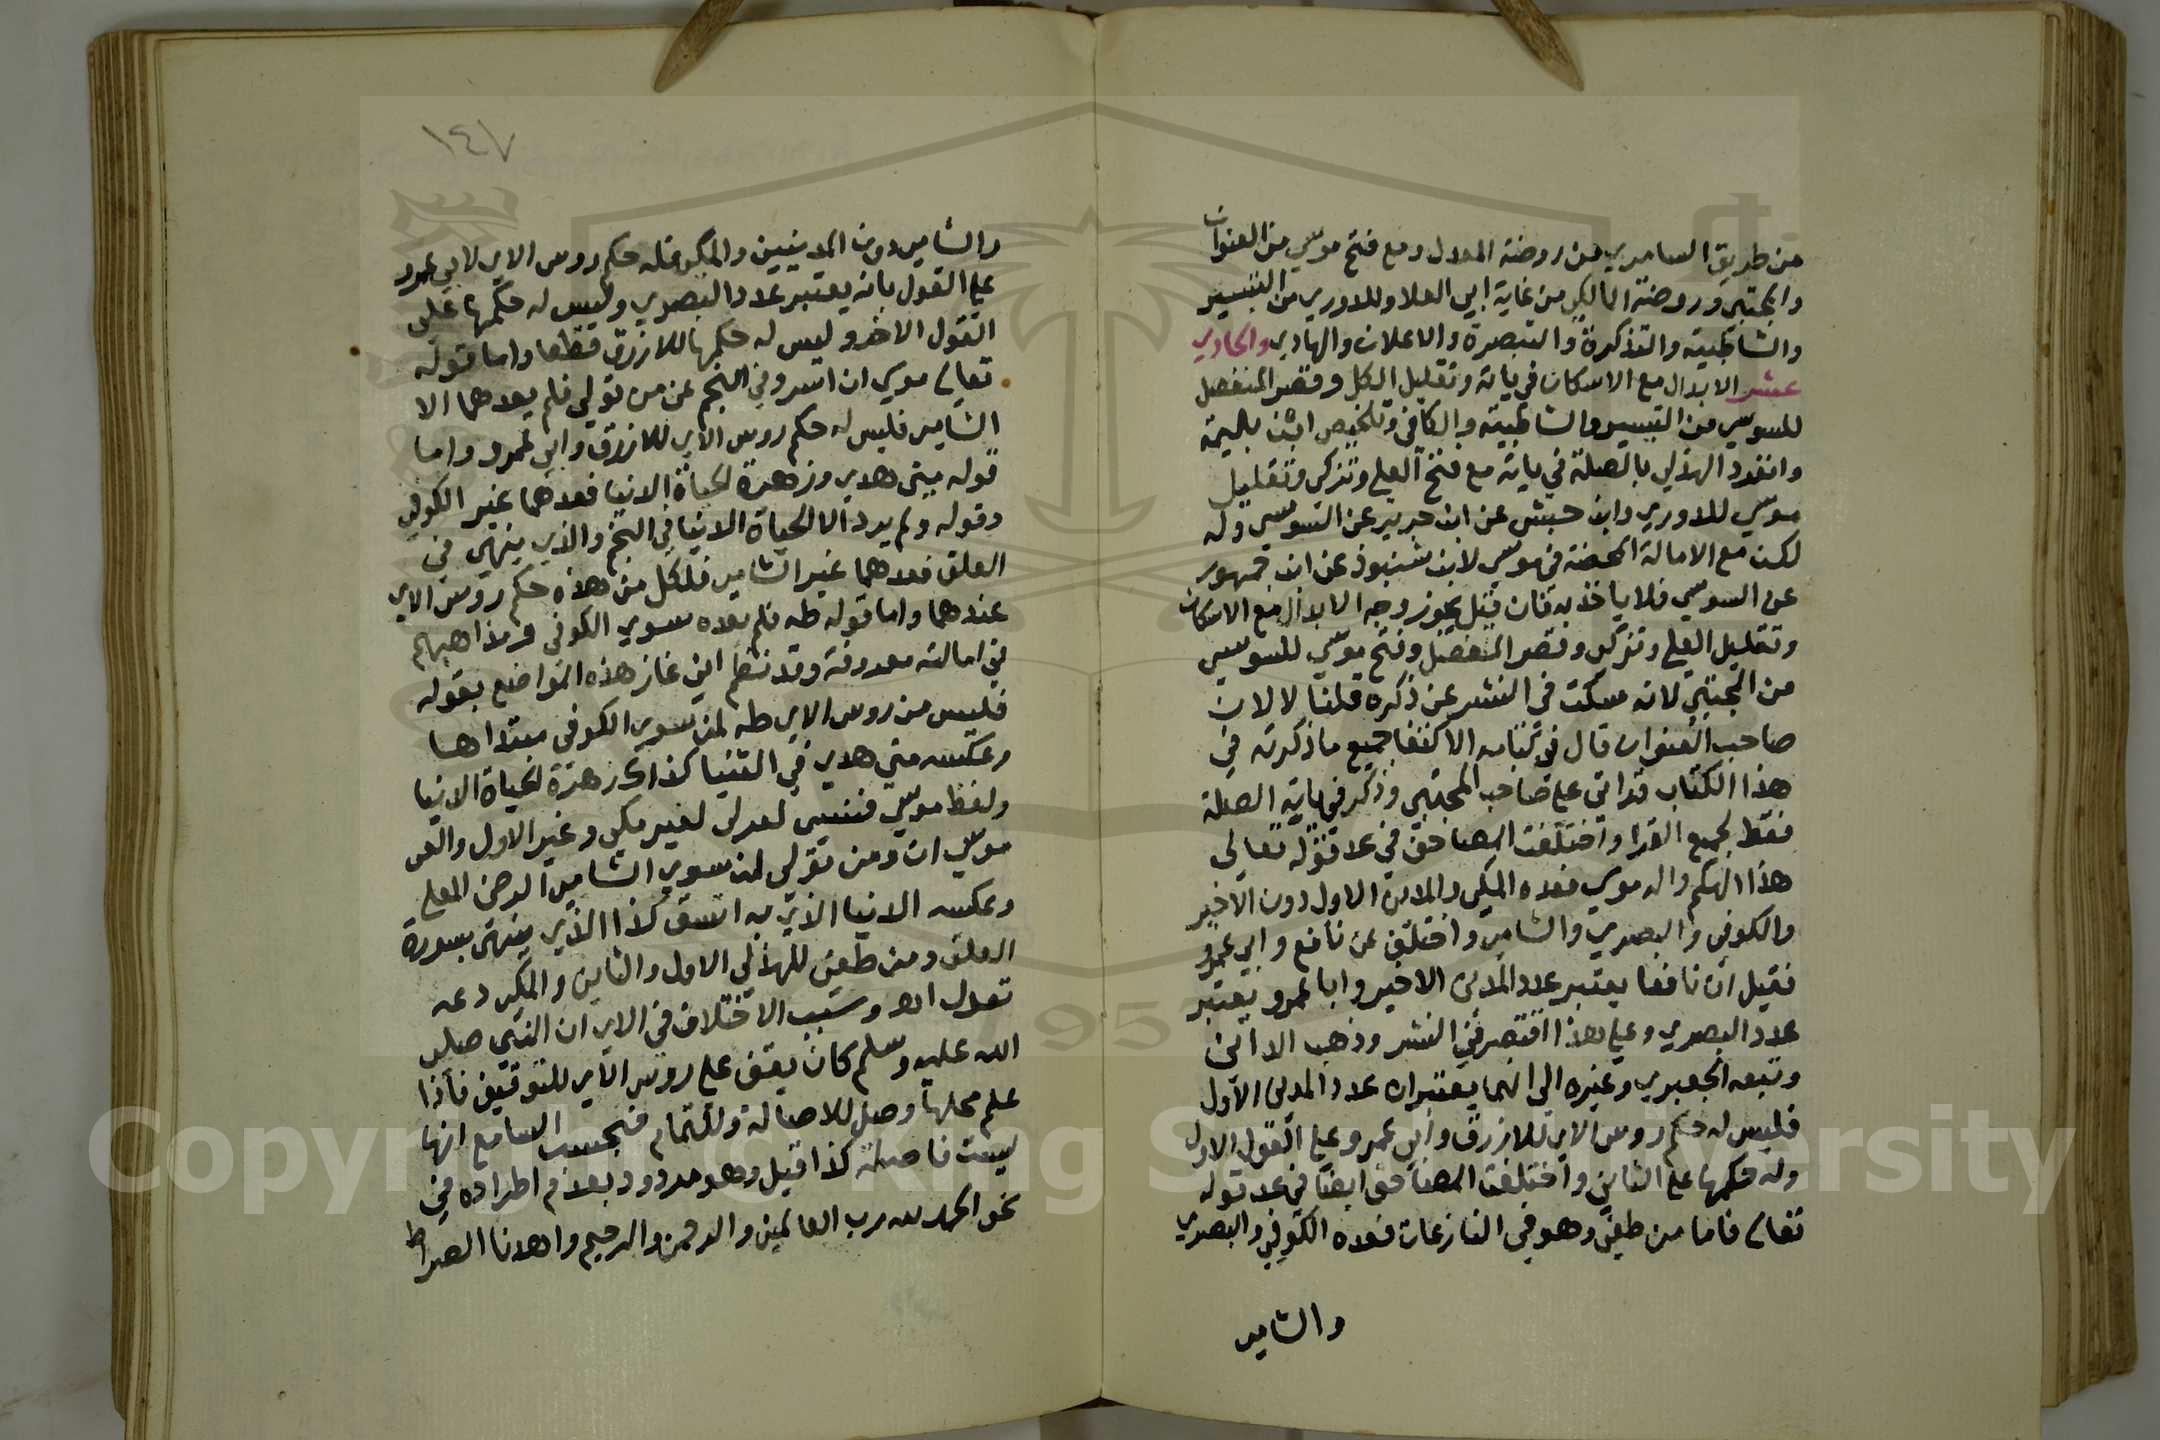 من طريق السامري من روضة المعدل ومع فتح موسي من العنوان
والمجتبي وروضة المالكي من غاية ابي العلا وللدوري من التيسير
والشاطبية والتذكرة والتبصرة والاعلان والهادي والحادي
عشر الابدال مع الاسكان في ياته وتقليل الكل وقصر المنفصل
للسوسي من التيسير والشاطبية والكافي وتلخيص ابن بليمة
وانفرد الهذلي بالصلة في ياته مع فتح العلي وتزكي وتقليل
موسي للدوري وابن حبش عن ابن جرير عن السوسي وله
لكن مع الامالة المحضة في موسي لابن شنبوذ عن ابن جمهور
عن السوسي فلا ياخذ به فان قيل يجوز وجه الابدال مع الاسكان
وتقليل العلي وتزكي وقصر المنفصل وفتح موسي للسوسي
من المجتبي لانه سكت في النشر عن ذكره قلنا لا لان
صاحب العنوان قال في كتابه الاكتفا جميع ما ذكرته في
هذا الكتاب قراتي علي صاحب المجتبي وذكر في ياته الصلة
فقط لجميع القرا واختلفت المصاحف في عد قوله تعالي
هذا الهكم واله موسي فعده المكي والمدني الاول دون الاخير
والكوفي والبصري والشامي واختلف عن نافع وابي عمرو
فقيل ان نافعا يعتبر عدد المدني الاخير وابا عمرو يعتبر
عدد البصري وعلي هذا اقتصر في النشر وذهب الداني
وتبعه الجعبري وغيره الي انهما يعتبران عدد المدني الاول
فليس له حكم روس الاي للازرق وابي عمرو علي القول الاول
وله حكمها علي الثاني واختلفت المصاحف ايضا في عد قوله
تعالي فاما من طغي وهو في النازعات فعده الكوفي والبصري
والشامي
١٤٧
والشامي دون المدنيين والمكي فله حكم روس الاي لابي عمرو
علي القول بانه يعتبر عدد البصري وليس له حكمها علي
القول الاخر وليس له حكمها للازرق قطعا واما قوله
تعالي موسي ان اسر وفي النجم عن من تولي فلم يعدهما الا
الشامي فليس له حكم روس الاي للازرق وابي عمرو واما
قوله مني هدي وزهرة الحياة الدنيا فعدهما غير الكوفي
وقوله ولم يرد الا الحياة الدنيا في النجم والذي ينهي في
العلق فعدهما غير الشامي فلكل من هذه حكم روس الاي
عندهما واما قوله طه فلم يعده سوي الكوفي ومذاهبهم
في امالته معروفة وقد نظم ابن غاز هذه المواضع بقوله
فليس من روس الاي طه لمن سوي الكوفي مبتداها
وعكسه مني هدي في الثنيا كذاك زهرة الحياة الدنيا
ولفظ موسي فنسي لعدل لغير مكي وغير الاول والعي
موسي ان ومن تولي لمن سوي الشامي الرضي المعلي
وعكسه الدنيا الذي به اتسق كذا الذي ينهي بسورة
العلق ومن طغي للهذلي الاول والثاني والمكي دعه
تعدل اه وسبب الاختلاف في الاي ان النبي صلي
الله عليه وسلم كان يقف علي روس الاي للتوقيف فاذا
علم محلها وصل للاصالة وللتمام فيحسب السامع انها
ليست فاصلة كذا قيل وهو مردود بعدم اطراده في
نحو الحمد لله رب العالمين والرحمن الرحيم واهدنا الصراط
Copyright © King Saud University